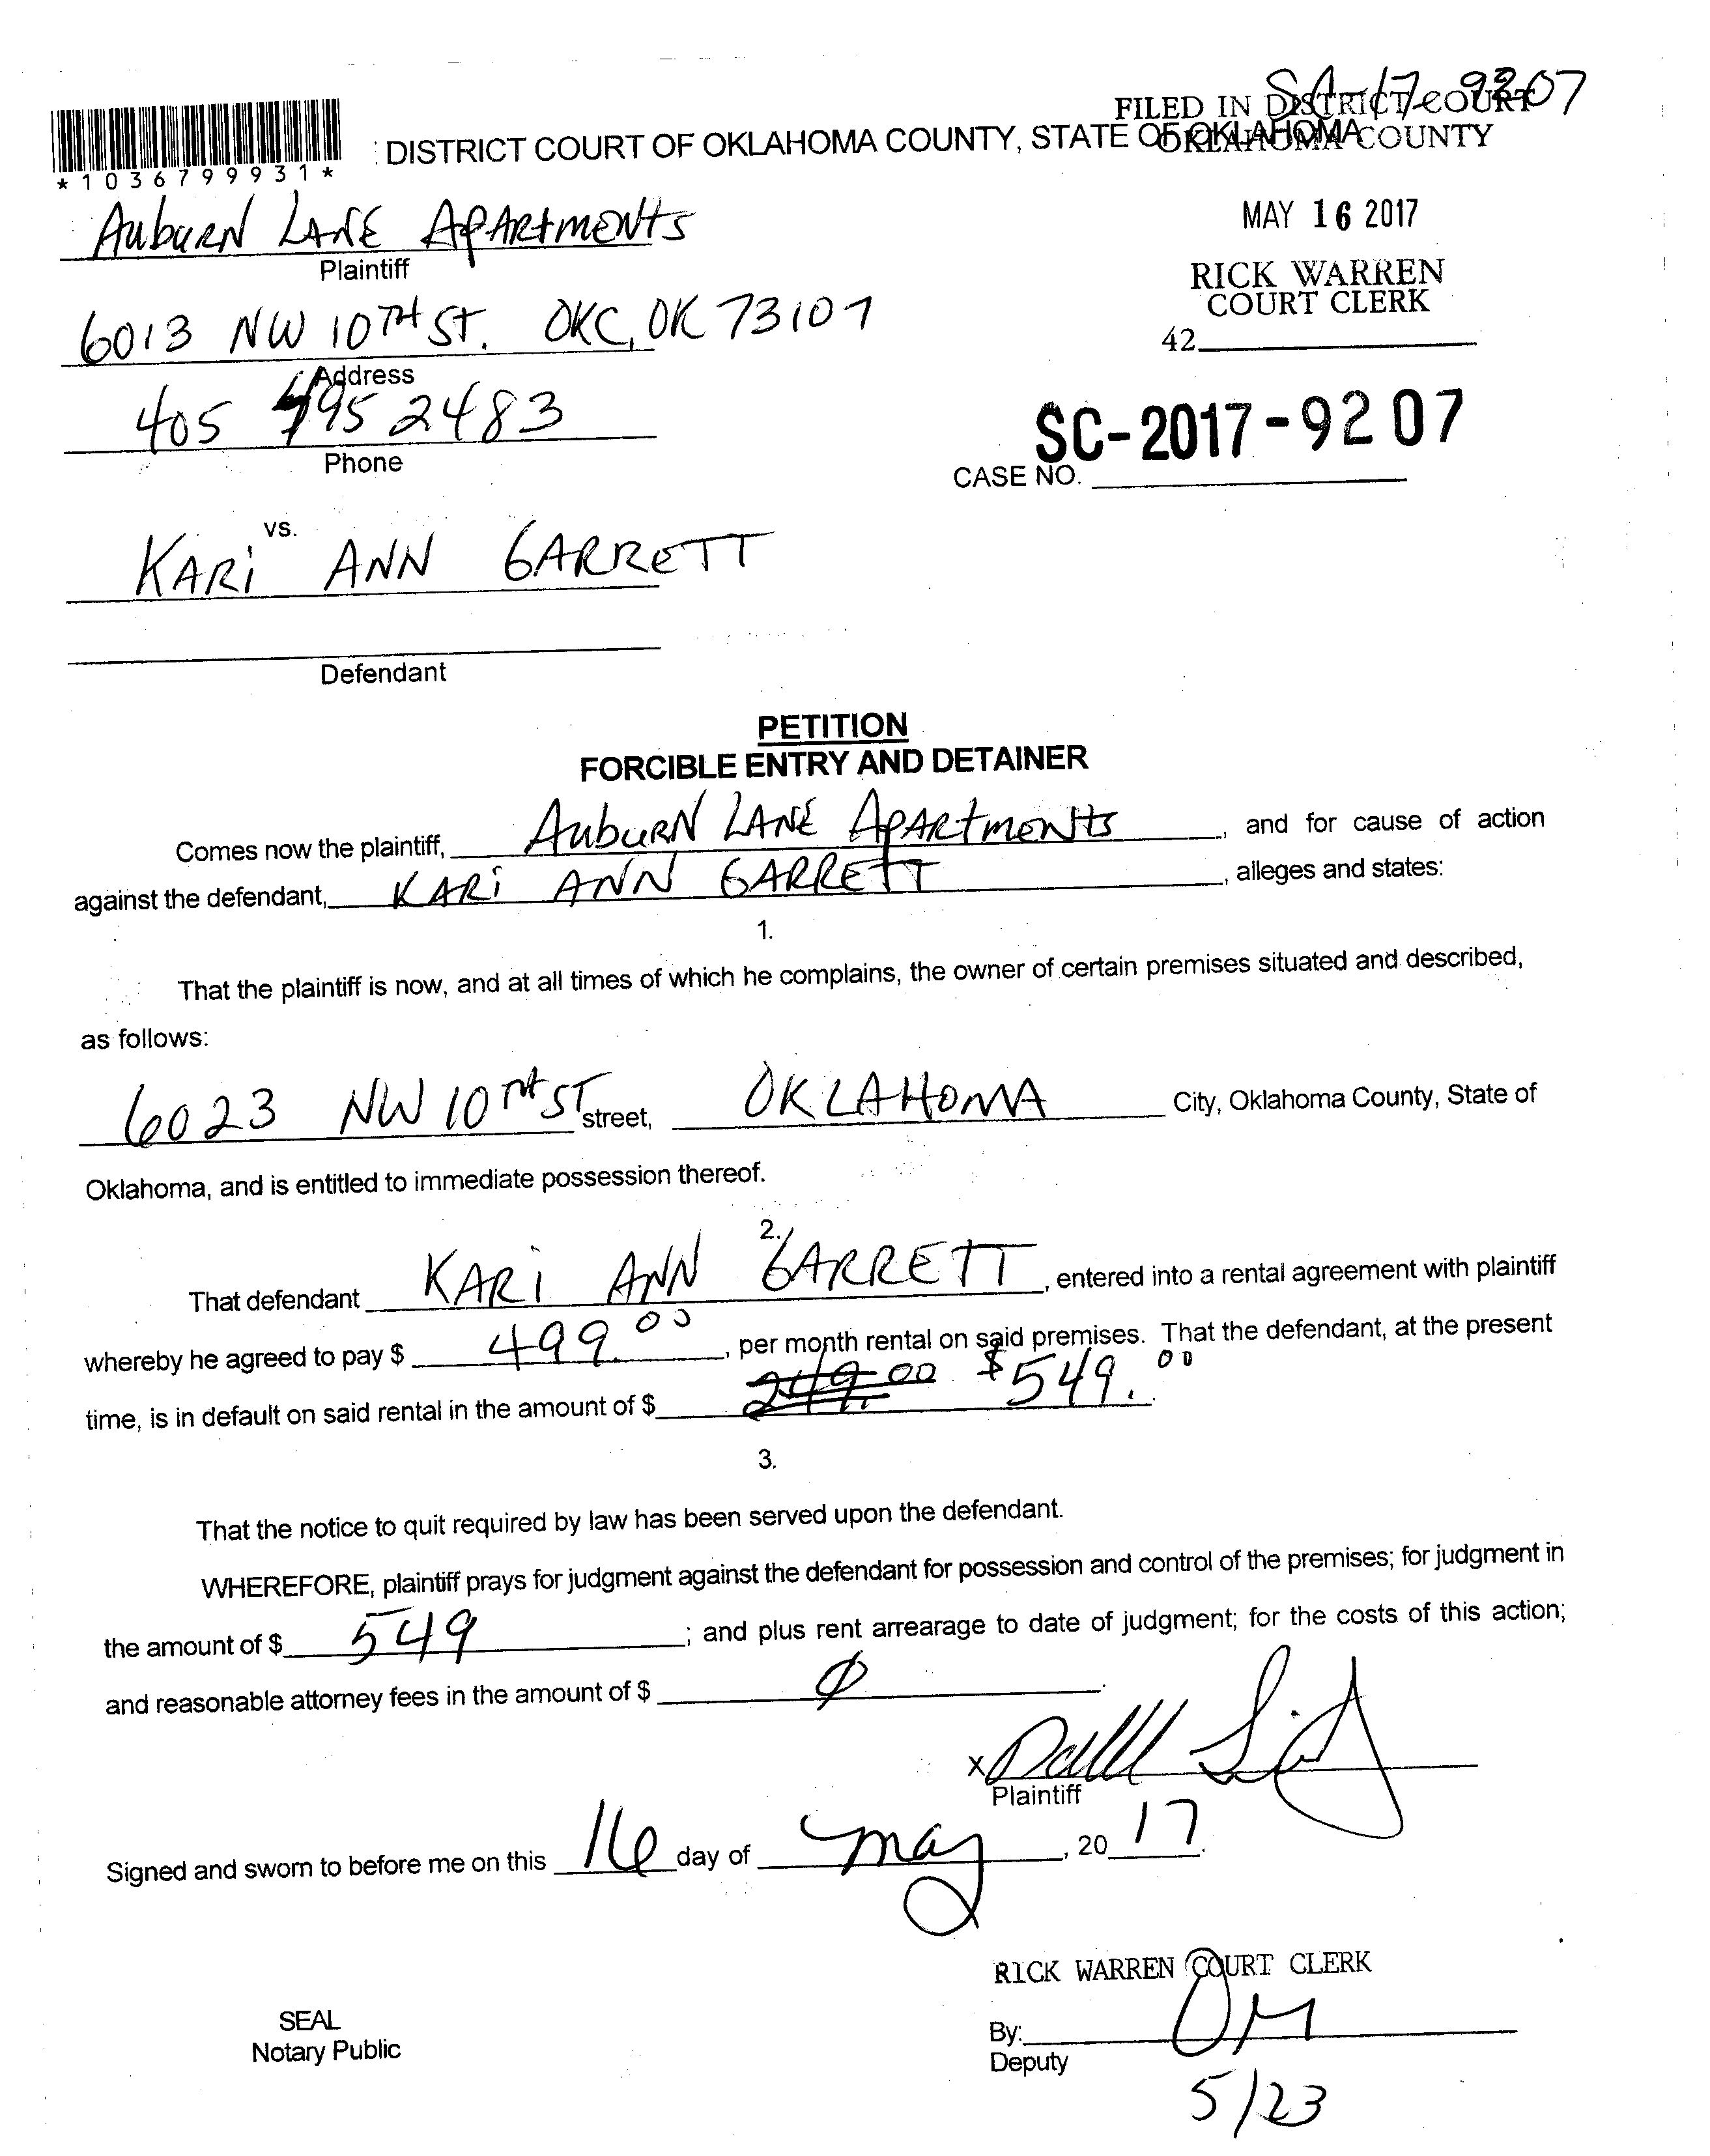 SC-17-9207
FILED IN DISTRICT COURT
OKLAHOMA COUNTY
*1036799931*
DISTRICT COURT OF OKLAHOMA COUNTY, STATE OF OKLAHOMA
MAY 16 2017
RICK WARREN
COURT CLERK
42
AubuRN LANE APARtMENtS
Plaintiff
6013 NW 10TH ST. OKC, OK 73107
Address
405 495 2483
Phone
SC-2017-9207
CASE NO.
vs.
KARi ANN GARRETT
Defendant
PETITION
FORCIBLE ENTRY AND DETAINER
Comes now the plaintiff, AubuRN LANE APARtmeNtS, and for cause of action
against the defendant, KARi ANN GARRETT, alleges and states:
1.
That the plaintiff is now, and at all times of which he complains, the owner of certain premises situated and described,
as follows:
6023 NW 10TH ST street, OKLAHOMA City, Oklahoma County, State of
Oklahoma, and is entitled to immediate possession thereof.
2.
That defendant KARi ANN GARRETT, entered into a rental agreement with plaintiff
whereby he agreed to pay $ 499.00, per month rental on said premises. That the defendant, at the present
time, is in default on said rental in the amount of $ 249.00 $549.00.
3.
That the notice to quit required by law has been served upon the defendant.
WHEREFORE, plaintiff prays for judgment against the defendant for possession and control of the premises; for judgment in
the amount of $ 549; and plus rent arrearage to date of judgment; for the costs of this action;
and reasonable attorney fees in the amount of $ Ø.
X
Plaintiff
Signed and sworn to before me on this 16 day of may, 20 17.
RICK WARREN COURT CLERK
SEAL
Notary Public
By: OM
Deputy
5/23